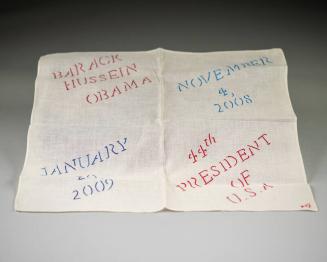 BARACK
HUSSEIN
OBAMA
NOVEMBER
4,
2008
JANUARY
2009
44th
PRESIDENT
OF
U.S.A